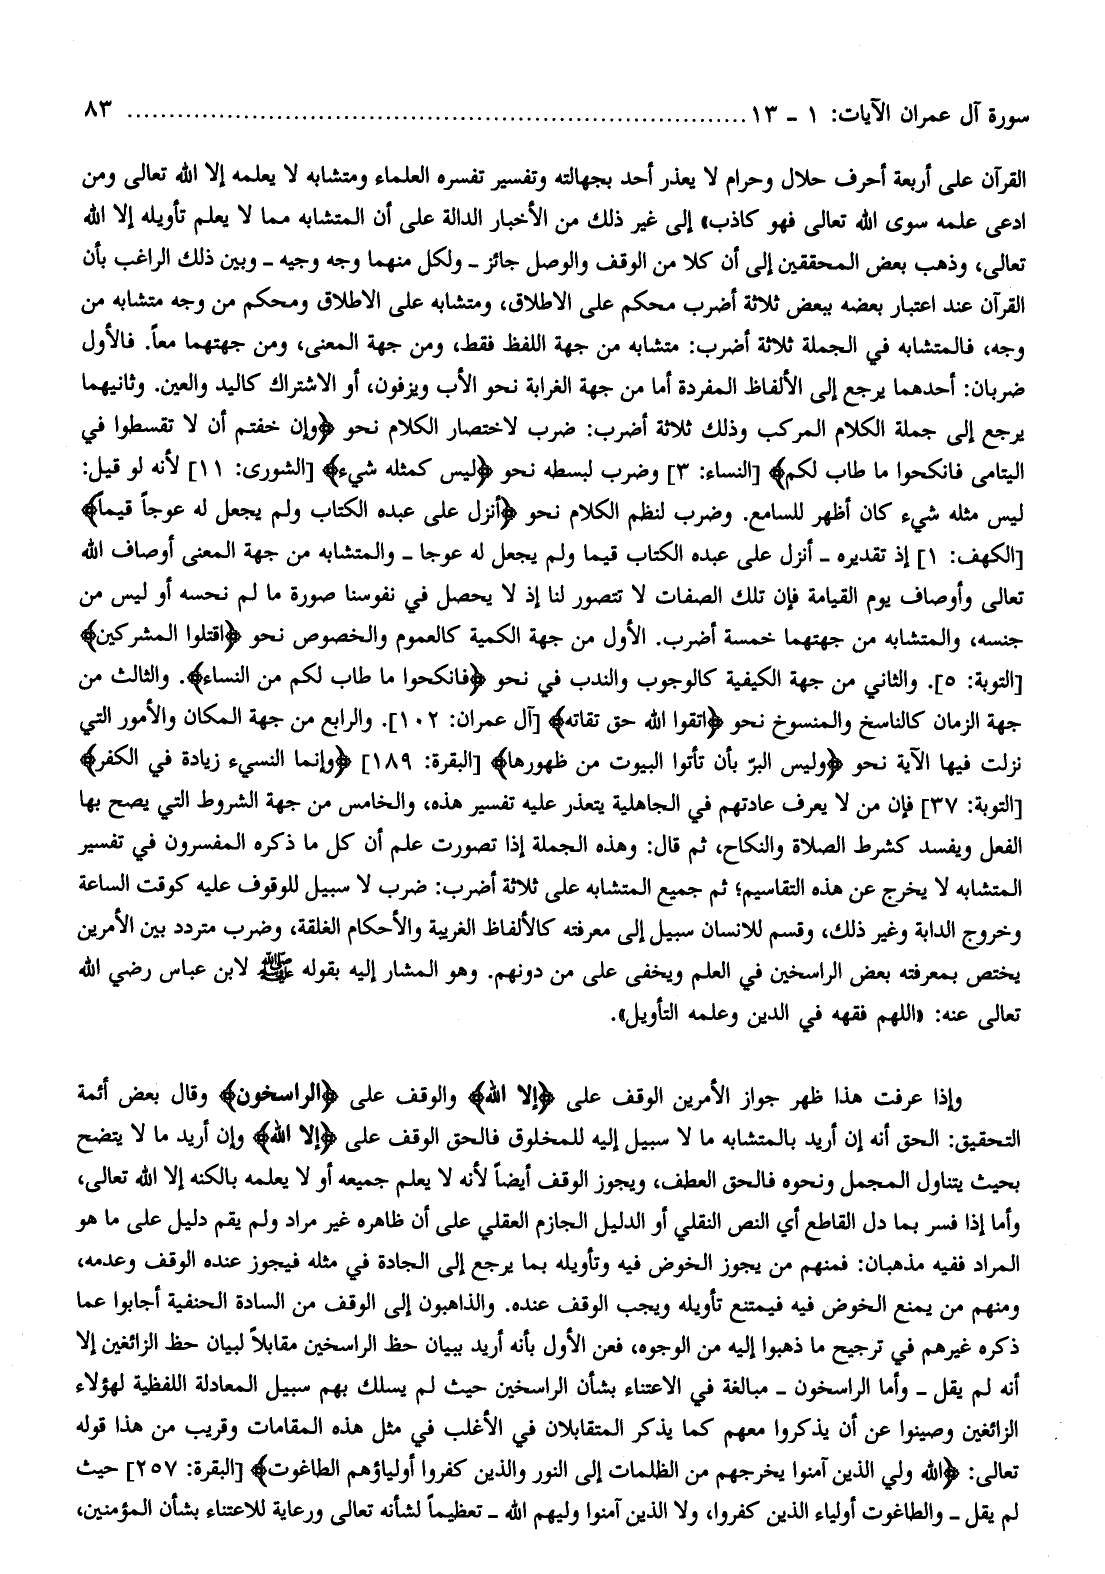 سورة آل عمران الآيات: ١ ـ ١٣ ........................................................................... ٨٣
القرآن على أربعة أحرف حلال وحرام لا يعذر أحد بجهالته وتفسير تفسره العلماء ومتشابه لا يعلمه إلا الله تعالى ومن
ادعى علمه سوى الله تعالى فهو كاذب» إلى غير ذلك من الأخبار الدالة على أن المتشابه مما لا يعلم تأويله إلا الله
تعالى، وذهب بعض المحققين إلى أن كلا من الوقف والوصل جائز ـ ولكل منهما وجه وجيه ـ وبين ذلك الراغب بأن
القرآن عند اعتبار بعضه ببعض ثلاثة أضرب محكم على الاطلاق، ومتشابه على الاطلاق ومحكم من وجه متشابه من
وجه، فالمتشابه في الجملة ثلاثة أضرب: متشابه من جهة اللفظ فقط، ومن جهة المعنى، ومن جهتهما معاً. فالأول
ضربان: أحدهما يرجع إلى الألفاظ المفردة أما من جهة الغرابة نحو الأب ويزفون، أو الاشتراك كاليد والعين. وثانيهما
يرجع إلى جملة الكلام المركب وذلك ثلاثة أضرب: ضرب لاختصار الكلام نحو ﴿وإن خفتم أن لا تقسطوا في
اليتامى فانكحوا ما طاب لكم﴾ [النساء: ٣] وضرب لبسطه نحو ﴿ليس كمثله شيء﴾ [الشورى: ١١] لأنه لو قيل:
ليس مثله شيء كان أظهر للسامع. وضرب لنظم الكلام نحو ﴿أنزل على عبده الكتاب ولم يجعل له عوجاً قيماً﴾
[الكهف: ١] إذ تقديره ـ أنزل على عبده الكتاب قيما ولم يجعل له عوجا ـ والمتشابه من جهة المعنى أوصاف الله
تعالى وأوصاف يوم القيامة فإن تلك الصفات لا تتصور لنا إذ لا يحصل في نفوسنا صورة ما لم نحسه أو ليس من
جنسه، والمتشابه من جهتهما خمسة أضرب. الأول من جهة الكمية كالعموم والخصوص نحو ﴿اقتلوا المشركين﴾
[التوبة: ٥]. والثاني من جهة الكيفية كالوجوب والندب في نحو ﴿فانكحوا ما طاب لكم من النساء﴾. والثالث من
جهة الزمان كالناسخ والمنسوخ نحو ﴿اتقوا الله حق تقاته﴾ [آل عمران: ١٠٢]. والرابع من جهة المكان والأمور التي
نزلت فيها الآية نحو ﴿وليس البرّ بأن تأتوا البيوت من ظهورها﴾ [البقرة: ١٨٩] ﴿وإنما النسيء زيادة في الكفر﴾
[التوبة: ٣٧] فإن من لا يعرف عادتهم في الجاهلية يتعذر عليه تفسير هذه، والخامس من جهة الشروط التي يصح بها
الفعل ويفسد كشرط الصلاة والنكاح، ثم قال: وهذه الجملة إذا تصورت علم أن كل ما ذكره المفسرون في تفسير
المتشابه لا يخرج عن هذه التقاسيم؛ ثم جميع المتشابه على ثلاثة أضرب: ضرب لا سبيل للوقوف عليه كوقت الساعة
وخروج الدابة وغير ذلك، وقسم للانسان سبيل إلى معرفته كالألفاظ الغريبة والأحكام الغلقة، وضرب متردد بين الأمرين
يختص بمعرفته بعض الراسخين في العلم ويخفى على من دونهم. وهو المشار إليه بقوله ﷺ لابن عباس رضي الله
تعالى عنه: «اللهم فقهه في الدين وعلمه التأويل».
وإذا عرفت هذا ظهر جواز الأمرين الوقف على ﴿إلا الله﴾ والوقف على ﴿الراسخون﴾ وقال بعض أئمة
التحقيق: الحق أنه إن أريد بالمتشابه ما لا سبيل إليه للمخلوق فالحق الوقف على ﴿إلا الله﴾ وإن أريد ما لا يتضح
بحيث يتناول المجمل ونحوه فالحق العطف، ويجوز الوقف أيضاً لأنه لا يعلم جميعه أو لا يعلمه بالكنه إلا الله تعالى،
وأما إذا فسر بما دل القاطع أي النص النقلي أو الدليل الجازم العقلي على أن ظاهره غير مراد ولم يقم دليل على ما هو
المراد ففيه مذهبان: فمنهم من يجوز الخوض فيه وتأويله بما يرجع إلى الجادة في مثله فيجوز عنده الوقف وعدمه،
ومنهم من يمنع الخوض فيه فيمتنع تأويله ويجب الوقف عنده. والذاهبون إلى الوقف من السادة الحنفية أجابوا عما
ذكره غيرهم في ترجيح ما ذهبوا إليه من الوجوه، فعن الأول بأنه أريد ببيان حظ الراسخين مقابلاً لبيان حظ الزائغين إلا
أنه لم يقل ـ وأما الراسخون ـ مبالغة في الاعتناء بشأن الراسخين حيث لم يسلك بهم سبيل المعادلة اللفظية لهؤلاء
الزائغين وصينوا عن أن يذكروا معهم كما يذكر المتقابلان في الأغلب في مثل هذه المقامات وقريب من هذا قوله
تعالى: ﴿الله ولي الذين آمنوا يخرجهم من الظلمات إلى النور والذين كفروا أولياؤهم الطاغوت﴾ [البقرة: ٢٥٧] حيث
لم يقل ـ والطاغوت أولياء الذين كفروا، ولا الذين آمنوا وليهم الله ـ تعظيماً لشأنه تعالى ورعاية للاعتناء بشأن المؤمنين،